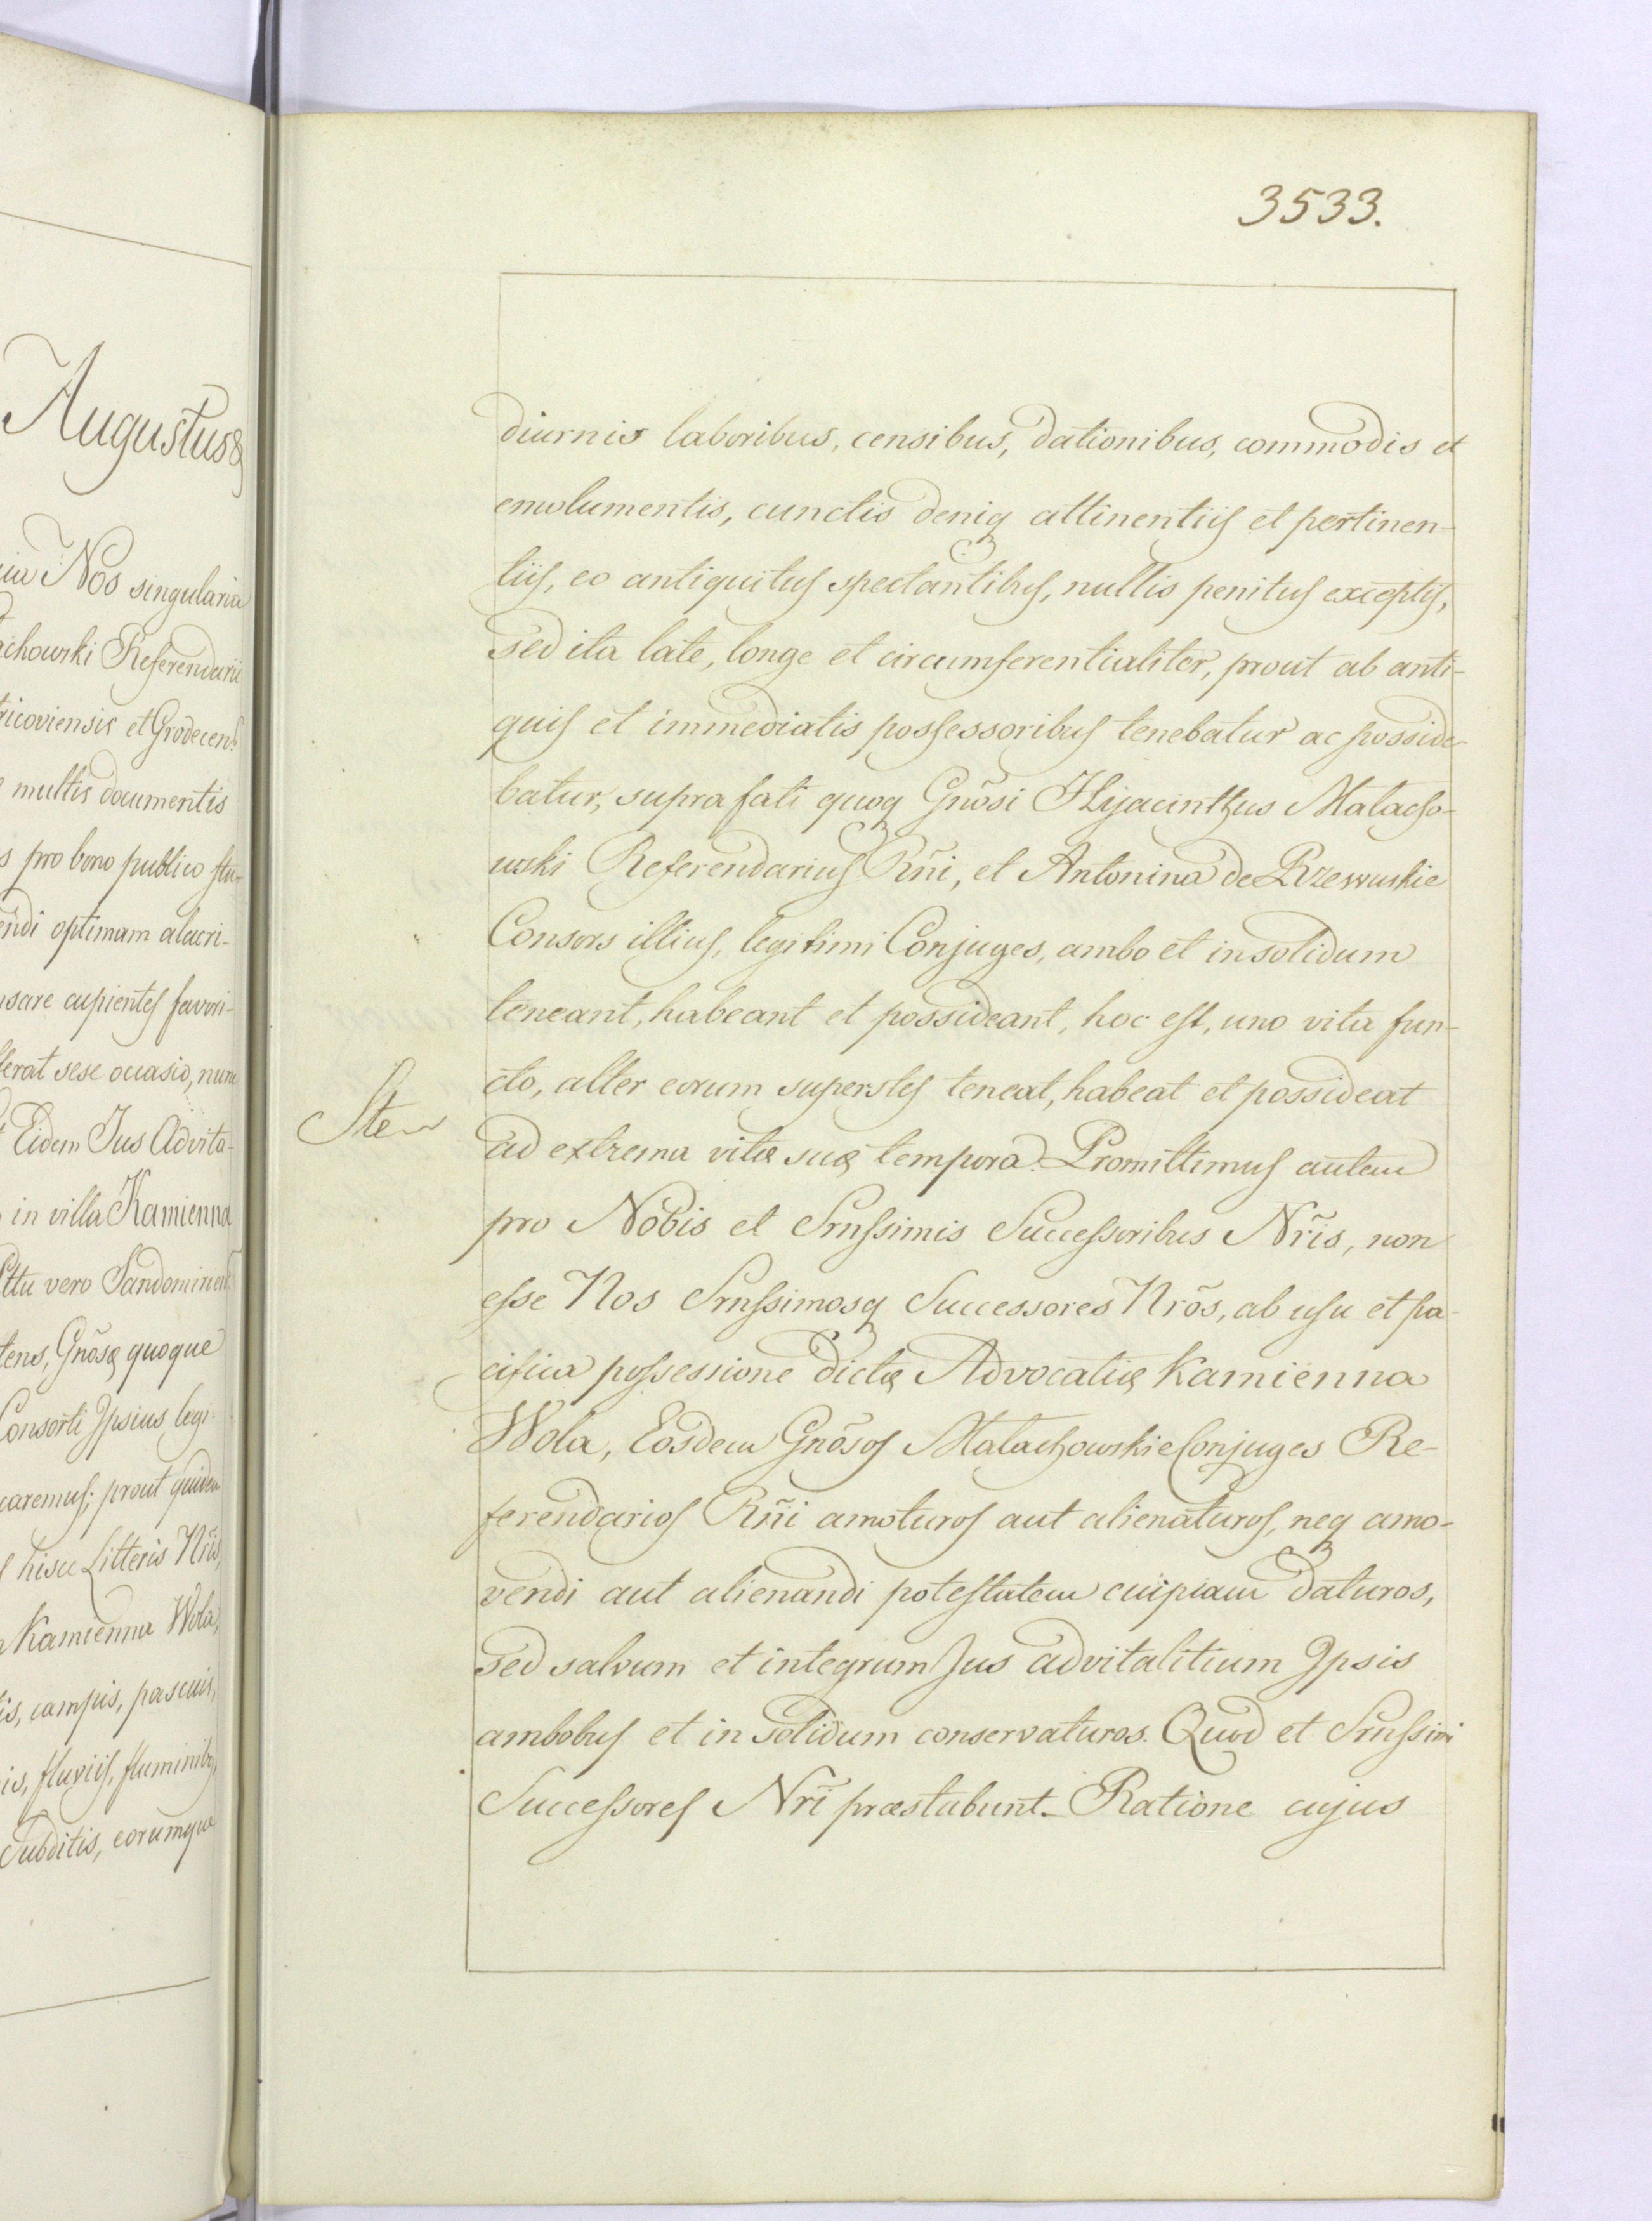 Augustus
Nos singularia
chowski Referendarii
ricoviensis et Grodecens
multis documentis
s pro bono publico stu-
endi optimam alacri-
nsare cupientes favori-
ferat sese occasio, nunc
Eidem Jus Advita-
in villa Kamienna
ttu vero Sandomirien
tens, Gnõsæ quoque
Consorti Ipsius, legi-
caremus; prout quidem
hisce Litteris Nr̃is,
Kamienna Wola,
is, campis, pascuis,
is, fluviis, fluminibq,
Subditis, eorumque
3533.
diurnis laboribus, censibus, dationibus, commodis et
emolumentis, cunctis deniq attinentiis et pertinen-
tiis, eo antiquitus spectantibus, nullis penitus exceptis,
sed ita late, longe et circumferentialiter, prout ab anti-
quis et immediatis possessoribus tenebatur ac posside-
batur, suprafati quoq Gnõsi Hyacinthus Malacho-
wski Referendarius Rñi, et Antonina de Rzewuskie
Consors illius, legitimi Conjuges, ambo et insolidum
teneant, habeant et possideant, hoc est, uno vita fun-
cto, alter eorum superstes teneat, habeat et possideat
ad extrema vitæ suæ tempora. Promittimus autem
pro Nobis et Srnssimis Successoribus Nr̃is, non
esse Nos Srnssimosq Successores Nrõs, ab usu et pa-
cifica possessione dictæ Advocatiæ Kamienna
Wola, Eosdem Gnõsos Malachowskie Conjuges Re-
ferendarios Rñi amoturos aut alienaturos, neq amo-
vendi aut alienandi potestatem cuipiam daturos,
sed salvum et integrum Jus advitalitium Ipsis
ambobus et in solidum conservaturos. Quod et Srnssimi
Successores Nr̃i præstabunt_ Ratione cujus